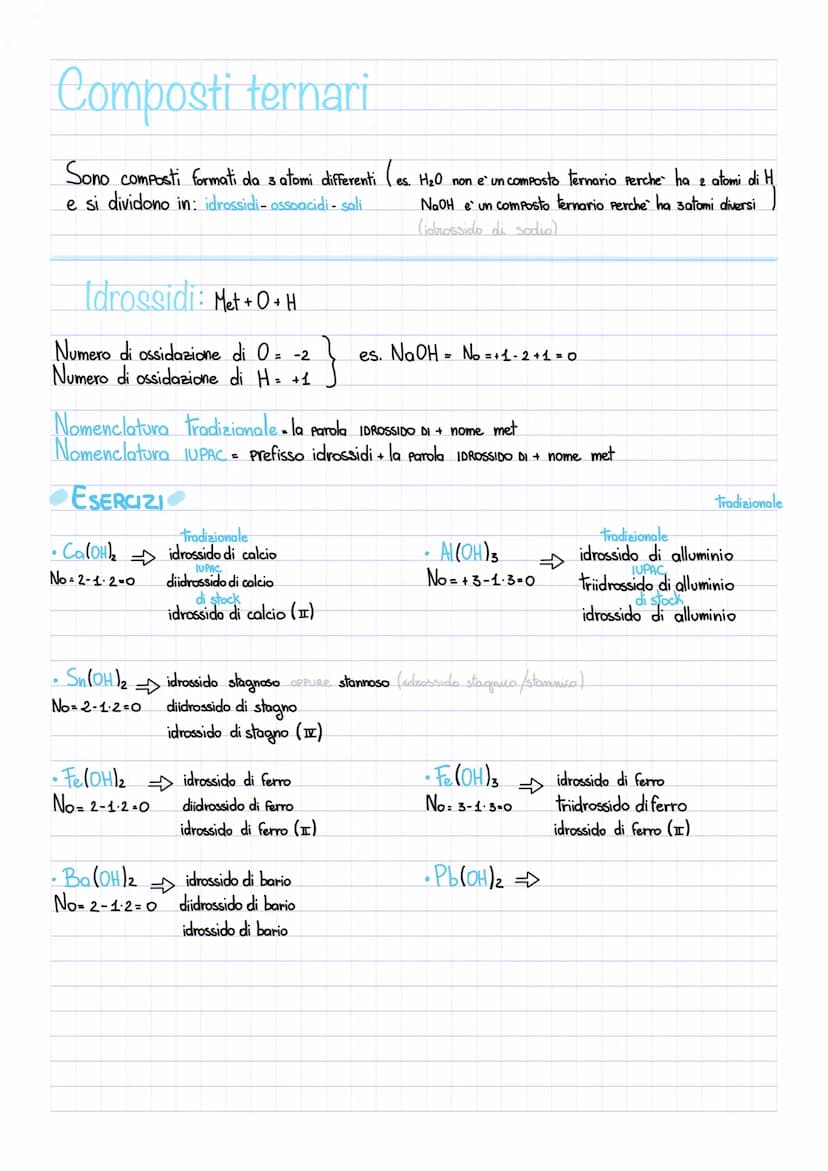 Composti ternari
Sono composti formati da 3 atomi differenti (es. H₂O non e' un composto ternario perche' ha 2 atomi di H
e si dividono in: idrossidi - ossoacidi - sali NaOH e' un composto ternario perche' ha 3 atomi diversi )
(idrossido di sodio)
Idrossidi: Met + O + H
Numero di ossidazione di O = -2 } es. NaOH = No = +1 - 2 + 1 = 0
Numero di ossidazione di H = +1
Nomenclatura tradizionale = la parola IDROSSIDO DI + nome met
Nomenclatura IUPAC = prefisso idrossidi + la parola IDROSSIDO DI + nome met
ESERCIZI
tradizionale
• Ca(OH)₂ ⇒ tradizionale
idrossido di calcio
No = 2-1·2=0 IUPAC
diidrossido di calcio
di stock
idrossido di calcio (II)
• Al(OH)₃ ⇒ tradizionale
idrossido di alluminio
No = +3-1·3=0 IUPAC
triidrossido di alluminio
di stock
idrossido di alluminio
• Sn(OH)₂ ⇒ idrossido stagnoso OPPURE stannoso (idrossido stagnico/stannico)
No = 2-1·2=0 diidrossido di stagno
idrossido di stagno (IV)
• Fe(OH)₂ ⇒ idrossido di ferro
No = 2-1·2=0 diidrossido di ferro
idrossido di ferro (II)
• Fe(OH)₃ ⇒ idrossido di ferro
No = 3-1·3=0 triidrossido di ferro
idrossido di ferro (II)
• Ba(OH)₂ ⇒ idrossido di bario
No = 2-1·2=0 diidrossido di bario
idrossido di bario
• Pb(OH)₂ ⇒